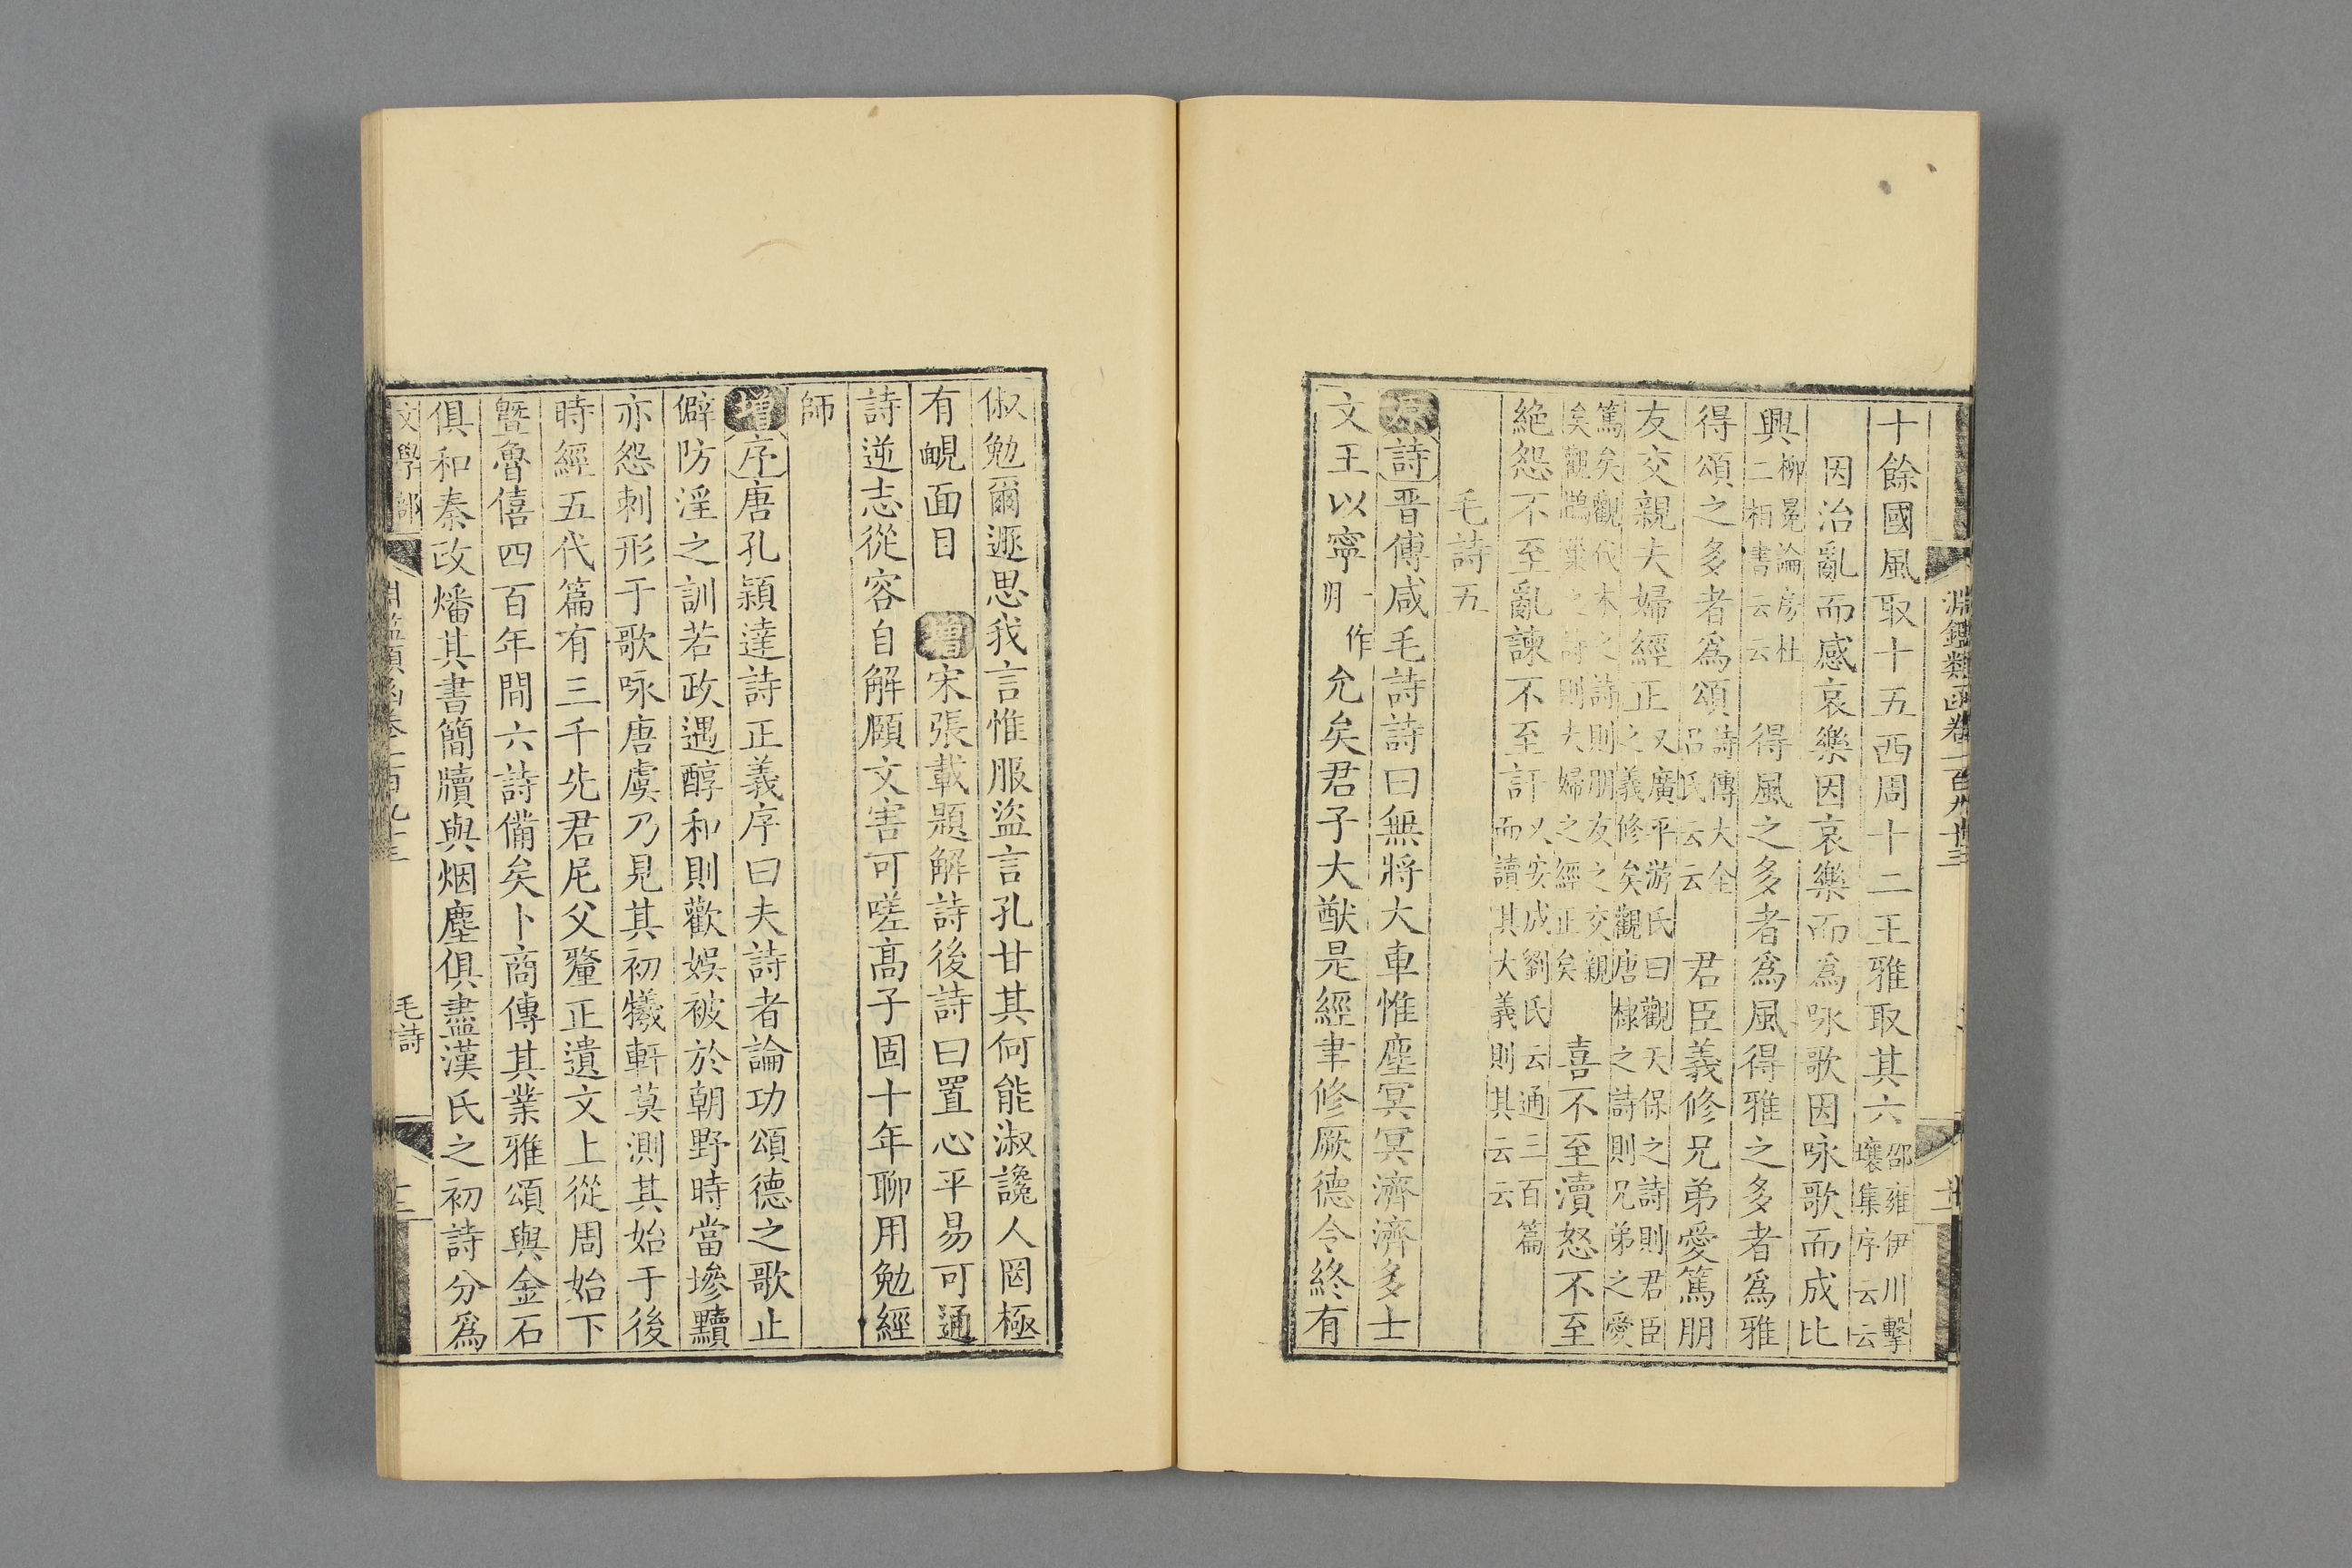 淵鑑類函卷一百九十三
十餘國風取十五西周十二王雅取其六邵雍伊川擊壤集序云云
因治亂而感哀樂因哀樂而爲咏歌因咏歌而成比
興柳冕論房杜二相書云云得風之多者爲風得雅之多者爲雅
得頌之多者爲頌詩傳大全呂氏云云君臣義修兄弟愛篤朋
友交親夫婦經正又廣平游氏曰觀天保之詩則君臣之義修矣觀唐棣之詩則兄弟之愛
篤矣觀代木之詩則朋友之交親矣觀鵲巢之詩則夫婦之經正矣喜不至瀆怒不至
絶怨不至亂諫不至訐又安成劉氏云通三百篇而讀其大義則其云云
毛詩五
原詩晋傅咸毛詩詩曰無將大車惟塵冥冥濟濟多士
文王以寧一作明允矣君子大猷是經聿修厥德令終有
俶勉爾遯思我言惟服盜言孔甘其何能淑讒人罔極
有靦面目增宋張載題解詩後詩曰置心平易可通
詩逆志從容自解頤文害可嗟高子固十年聊用勉經
師
增序唐孔穎達詩正義序曰夫詩者論功頌德之歌止
僻防淫之訓若政遇醇和則歡娛被於朝野時當墋黷
亦怨刺形于歌咏唐虞乃見其初犧軒莫測其始于後
時經五代篇有三千先君尼父釐正遺文上從周始下
暨魯僖四百年間六詩備矣卜商傳其業雅頌與金石
俱和秦政燔其書簡牘與烟塵俱盡漢氏之初詩分爲
文學部 毛詩